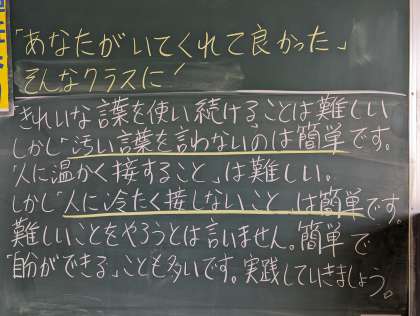 「あなたがいてくれて良かった」
そんなクラスに!
「きれいな言葉を使い続ける」ことは難しい
しかし「汚い言葉を言わない」のは簡単です。
「人に温かく接すること」は難しい。
しかし「人に冷たく接しないこと」は簡単です。
難しいことをやろうとは言いません。簡単で
「自分ができる」ことも多いです。実践していきましょう。